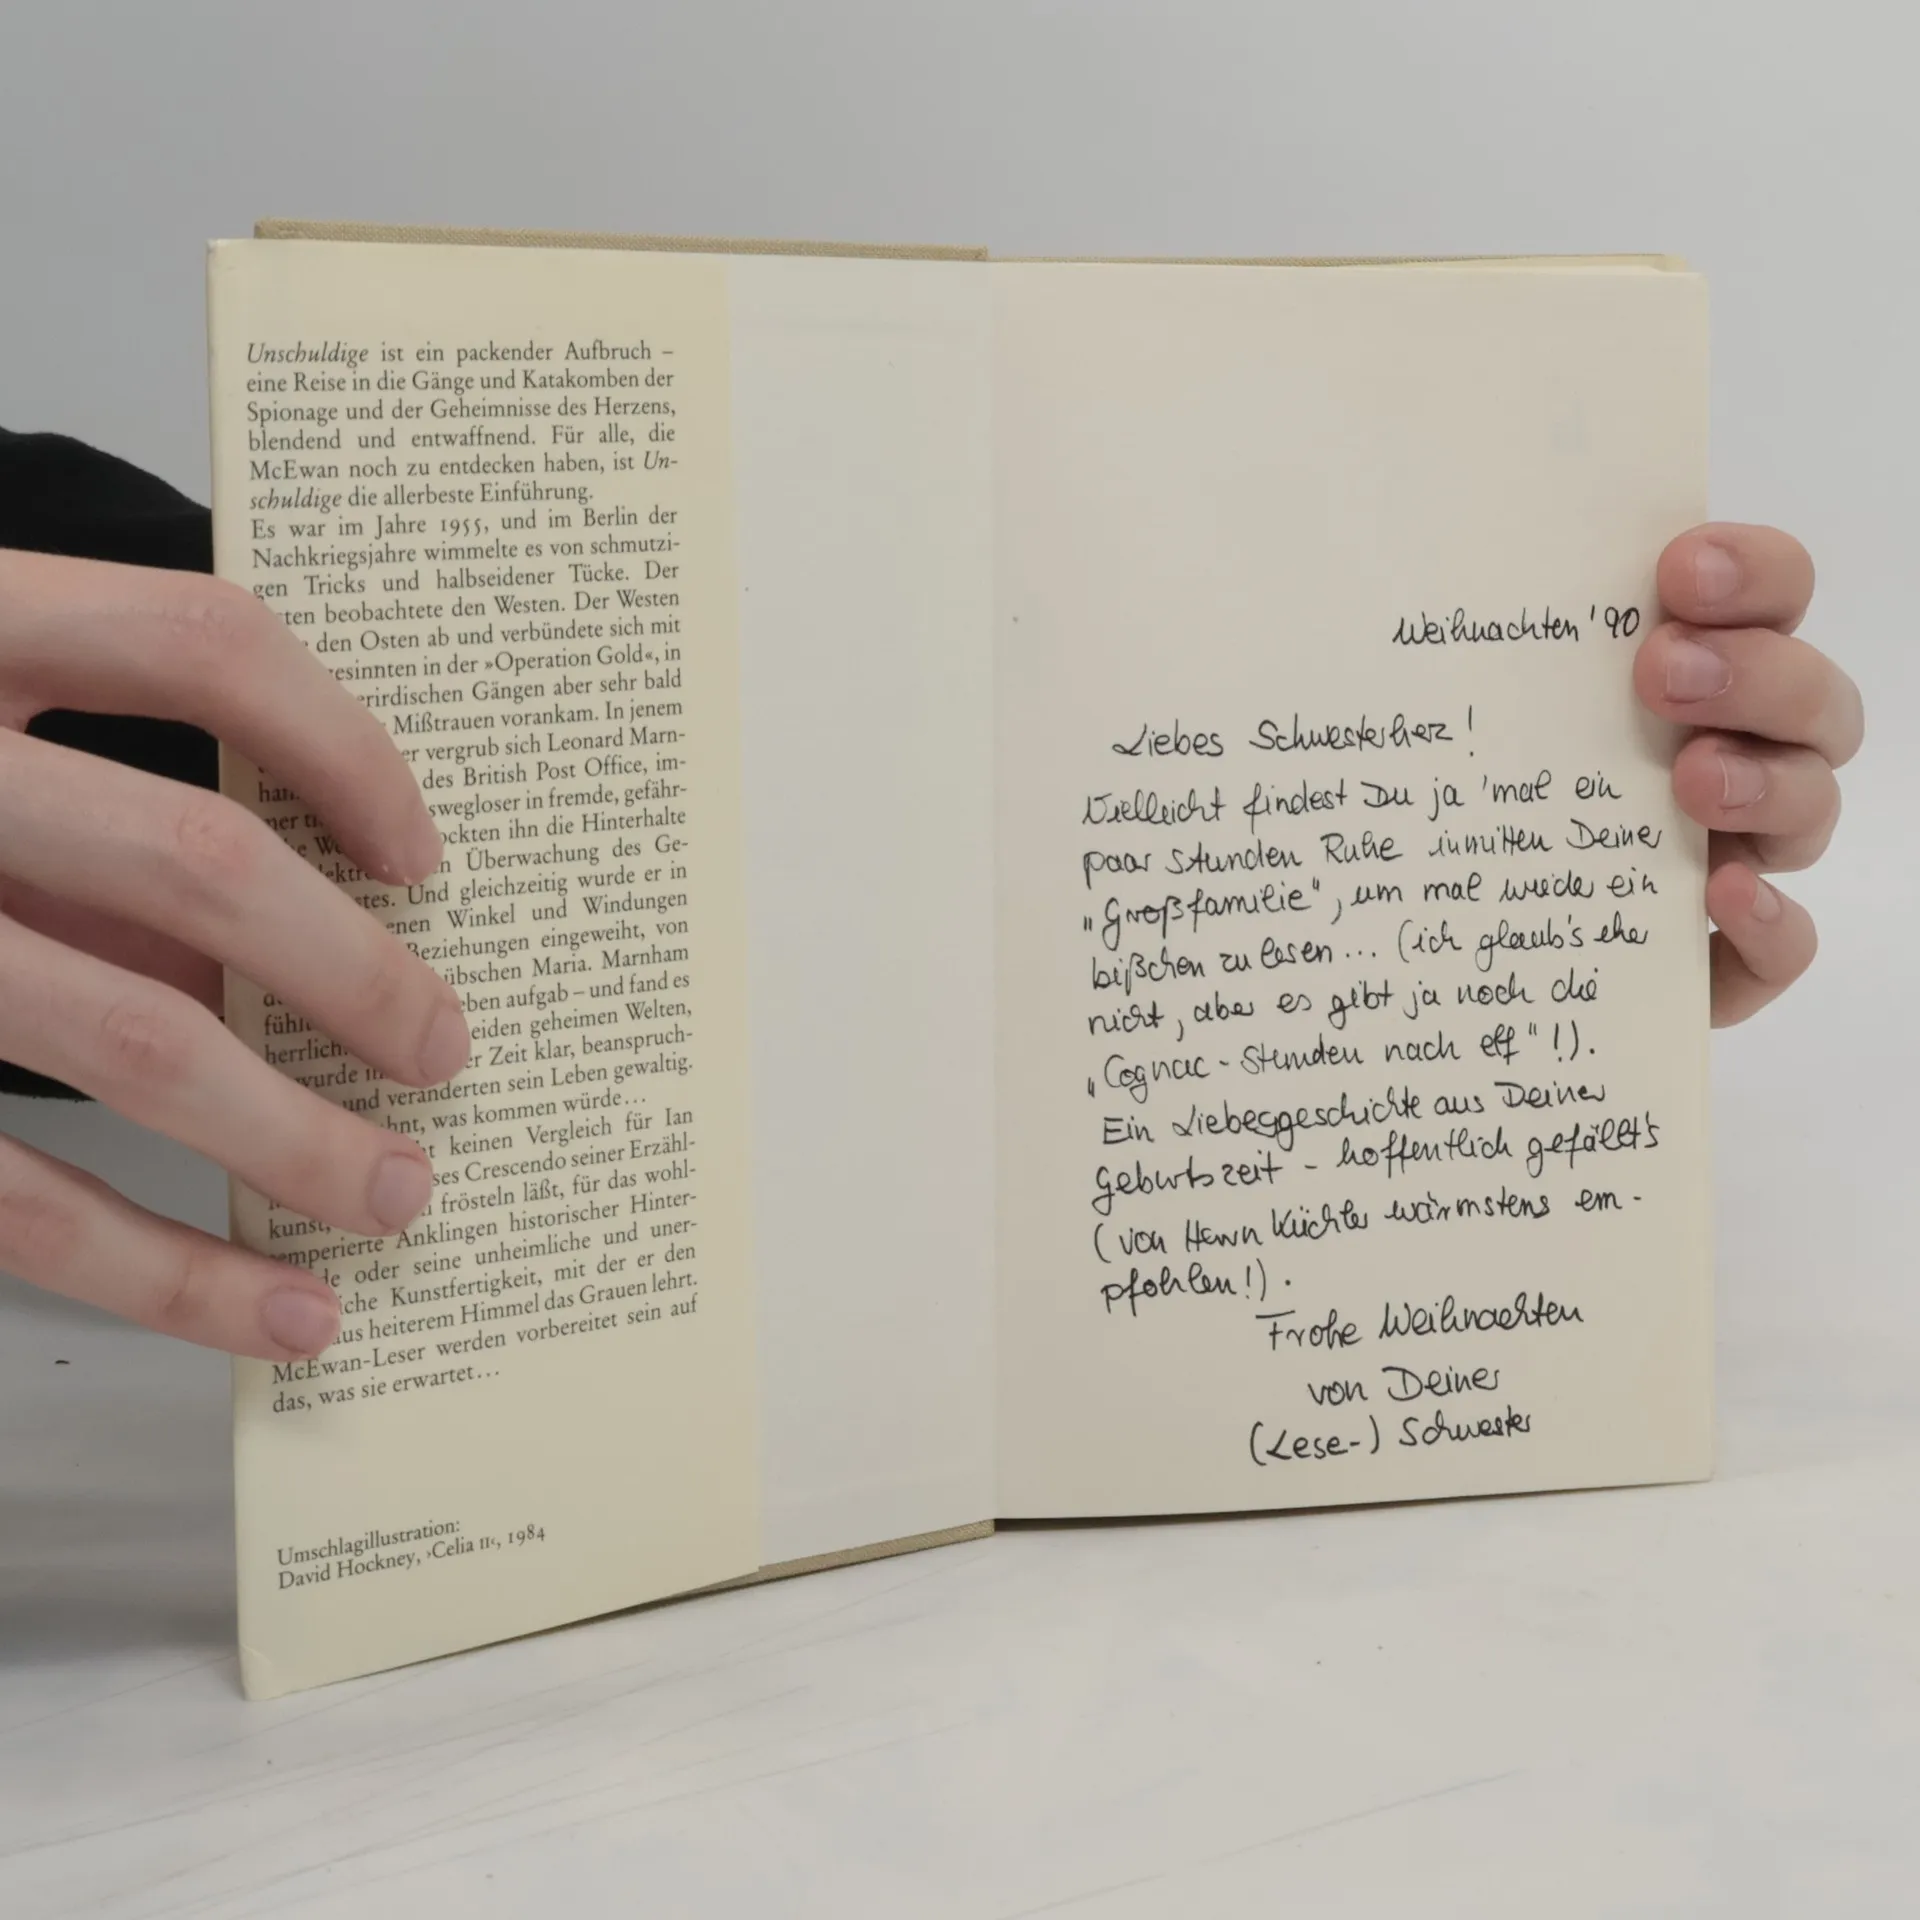 Unschuldige ist ein packender Aufbruch –
eine Reise in die Gänge und Katakomben der
Spionage und der Geheimnisse des Herzens,
blendend und entwaffnend. Für alle, die
McEwan noch zu entdecken haben, ist Un-
schuldige die allerbeste Einführung.
Es war im Jahre 1955, und im Berlin der
Nachkriegsjahre wimmelte es von schmutzi-
gen Tricks und halbseidener Tücke. Der
beobachtete den Westen. Der Westen
den Osten ab und verbündete sich mit
in der »Operation Gold«, in
Gängen aber sehr bald
Mißtrauen vorankam. In jenem
vergrub sich Leonard Marn-
des British Post Office, im-
in fremde, gefähr-
ihn die Hinterhalte
Überwachung des Ge-
Und gleichzeitig wurde er in
Winkel und Windungen
eingeweiht, von
Maria. Marnham
aufgab – und fand es
geheimen Welten,
Zeit klar, beanspruch-
und veränderten sein Leben gewaltig.
was kommen würde...
keinen Vergleich für Ian
Crescendo seiner Erzähl-
kunst, frösteln läßt, für das wohl-
temperierte Anklingen historischer Hinter-
oder seine unheimliche und uner-
Kunstfertigkeit, mit der er den
aus heiterem Himmel das Grauen lehrt.
McEwan-Leser werden vorbereitet sein auf
das, was sie erwartet...
Umschlagillustration:
David Hockney, ›Celia II‹, 1984
Weihnachten '90
Liebes Schwesterherz!
Vielleicht findest Du ja 'mal ein
paar Stunden Ruhe inmitten Deiner
„Großfamilie", um mal wieder ein
bißchen zu lesen... (ich glaub's eher
nicht, aber es gibt ja noch die
„Cognac-Stunden nach elf"!).
Ein Liebesgeschichte aus Deiner
Geburtszeit - hoffentlich gefällt's
(von Herrn Küchler wärmstens em-
pfohlen!).
Frohe Weihnachten
von Deiner
(Lese-) Schwester